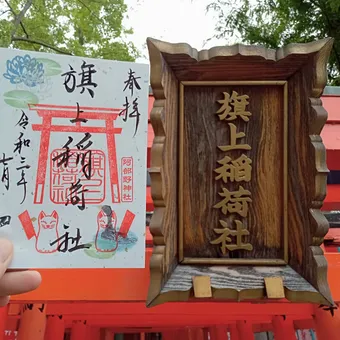 奉拝
旗上稲荷社
阿部野神社
令和三年
七月
四
旗上稲荷社